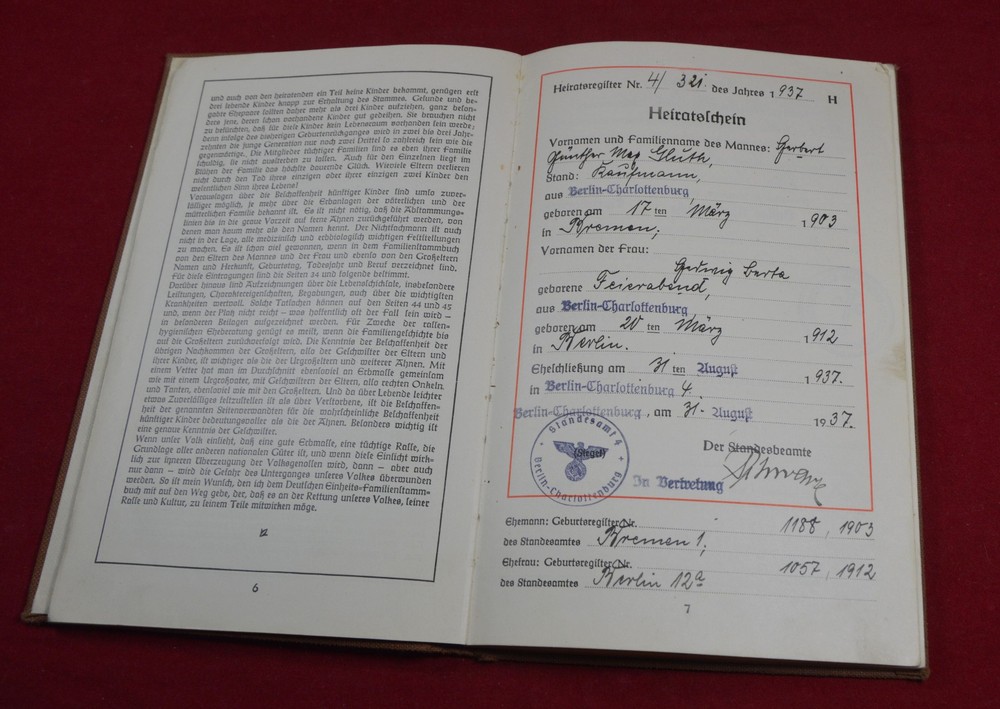 und auch von den Heiratenden ein Teil keine Kinder bekommt, genügen erst
drei lebende Kinder knapp zur Erhaltung des Stammes. Gesunde und be-
gabte Ehepaare sollten daher mehr als drei Kinder aufziehen, ganz beson-
dere jene, deren schon vorhandene Kinder gut gedeihen. Sie brauchen nicht
zu befürchten, daß für diese Kinder kein Lebensraum vorhanden sein werde;
denn infolge des bisherigen Geburtenrückganges wird in zwei bis drei Jahr-
zehnten die junge Generation nur noch zwei Drittel so zahlreich sein wie die
gegenwärtige. Die Mitglieder tüchtiger Familien sind es eben ihrer Familie
schuldig, sie nicht aussterben zu lassen. Auch für den Einzelnen liegt im
Blühen der Familie das höchste dauernde Glück. Wieviele Eltern verlieren
nicht durch den Tod ihres einzigen oder ihrer einzigen zwei Kinder den
wesentlichen Sinn ihres Lebens!
Voraussagen über die Beschaffenheit künftiger Kinder sind umso zuver-
lässiger möglich, je mehr über die Erbanlagen der väterlichen und der
mütterlichen Familie bekannt ist. Es ist nicht nötig, daß die Abstammungs-
linien bis in die graue Vorzeit auf ferne Ahnen zurückgeführt werden, von
denen man kaum mehr als den Namen kennt. Der Nichtfachmann ist auch
nicht in der Lage, alle medizinisch und erbbiologisch wichtigen Feststellungen
zu machen. Es ist schon viel gewonnen, wenn in dem Familienstammbuch
von den Eltern des Mannes und der Frau und ebenso von den Großeltern
Namen und Herkunft, Geburtstag, Todesjahr und Beruf verzeichnet sind.
Für diese Eintragungen sind die Seiten 34 und folgende bestimmt.
Darüber hinaus sind Aufzeichnungen über die Lebensschicksale, insbesondere
Leistungen, Charaktereigenschaften, Begabungen, auch über die wichtigsten
Krankheiten wertvoll. Solche Tatsachen können auf den Seiten 44 und 45
und, wenn der Platz nicht reicht – was hoffentlich oft der Fall sein wird –
in besonderen Beilagen aufgezeichnet werden. Für Zwecke der rassen-
hygienischen Eheberatung genügt es meist, wenn die Familiengeschichte bis
auf die Großeltern zurückverfolgt wird. Die Kenntnis der Beschaffenheit der
übrigen Nachkommen der Großeltern, also der Geschwister der Eltern und
ihrer Kinder, ist wichtiger als die der Urgroßeltern und weiterer Ahnen. Mit
einem Vetter hat man im Durchschnitt ebensoviel an Erbmasse gemeinsam
wie mit einem Urgroßvater, mit Geschwistern der Eltern, also rechten Onkeln
und Tanten, ebensoviel wie mit den Großeltern. Und da über Lebende leichter
etwas Zuverlässiges festzustellen ist als über Verstorbene, ist die Beschaffen-
heit der genannten Seitenverwandten für die wahrscheinliche Beschaffenheit
künftiger Kinder bedeutungsvoller als die der Ahnen. Besonders wichtig ist
eine genaue Kenntnis der Geschwister.
Wenn unser Volk einsieht, daß eine gute Erbmasse, eine tüchtige Rasse, die
Grundlage aller anderen nationalen Güter ist, und wenn diese Einsicht wirk-
lich zur inneren Überzeugung der Volksgenossen wird, dann – aber auch
nur dann – wird die Gefahr des Unterganges unseres Volkes überwunden
werden. So ist mein Wunsch, den ich dem Deutschen Einheits-Familienstamm-
buch mit auf den Weg gebe, der, daß es an der Rettung unseres Volkes, seiner
Rasse und Kultur, zu seinem Teile mitwirken möge.
6
Heiratsregister Nr. 4/ 321 des Jahres 1937 H
Heiratsschein
Vornamen und Familienname des Mannes: Herbert
Günther Max Gluth,
Stand: Kaufmann,
aus Berlin-Charlottenburg
geboren am 17 ten März 1903
in Bremen;
Vornamen der Frau:
Hedwig Berta
geborene Feierabend,
aus Berlin-Charlottenburg,
geboren am 20 ten März 1912
in Berlin.
Eheschließung am 31 ten August 1937.
in Berlin-Charlottenburg 4.
Berlin-Charlottenburg, am 31. August 1937.
Standesamt 4
(Siegel)
Berlin-Charlottenburg
Der Standesbeamte
In Vertretung
Ehemann: Geburtsregister Nr. 1188, 1903
des Standesamtes Bremen 1;
Ehefrau: Geburtsregister Nr. 1057, 1912
des Standesamtes Berlin 12a
7